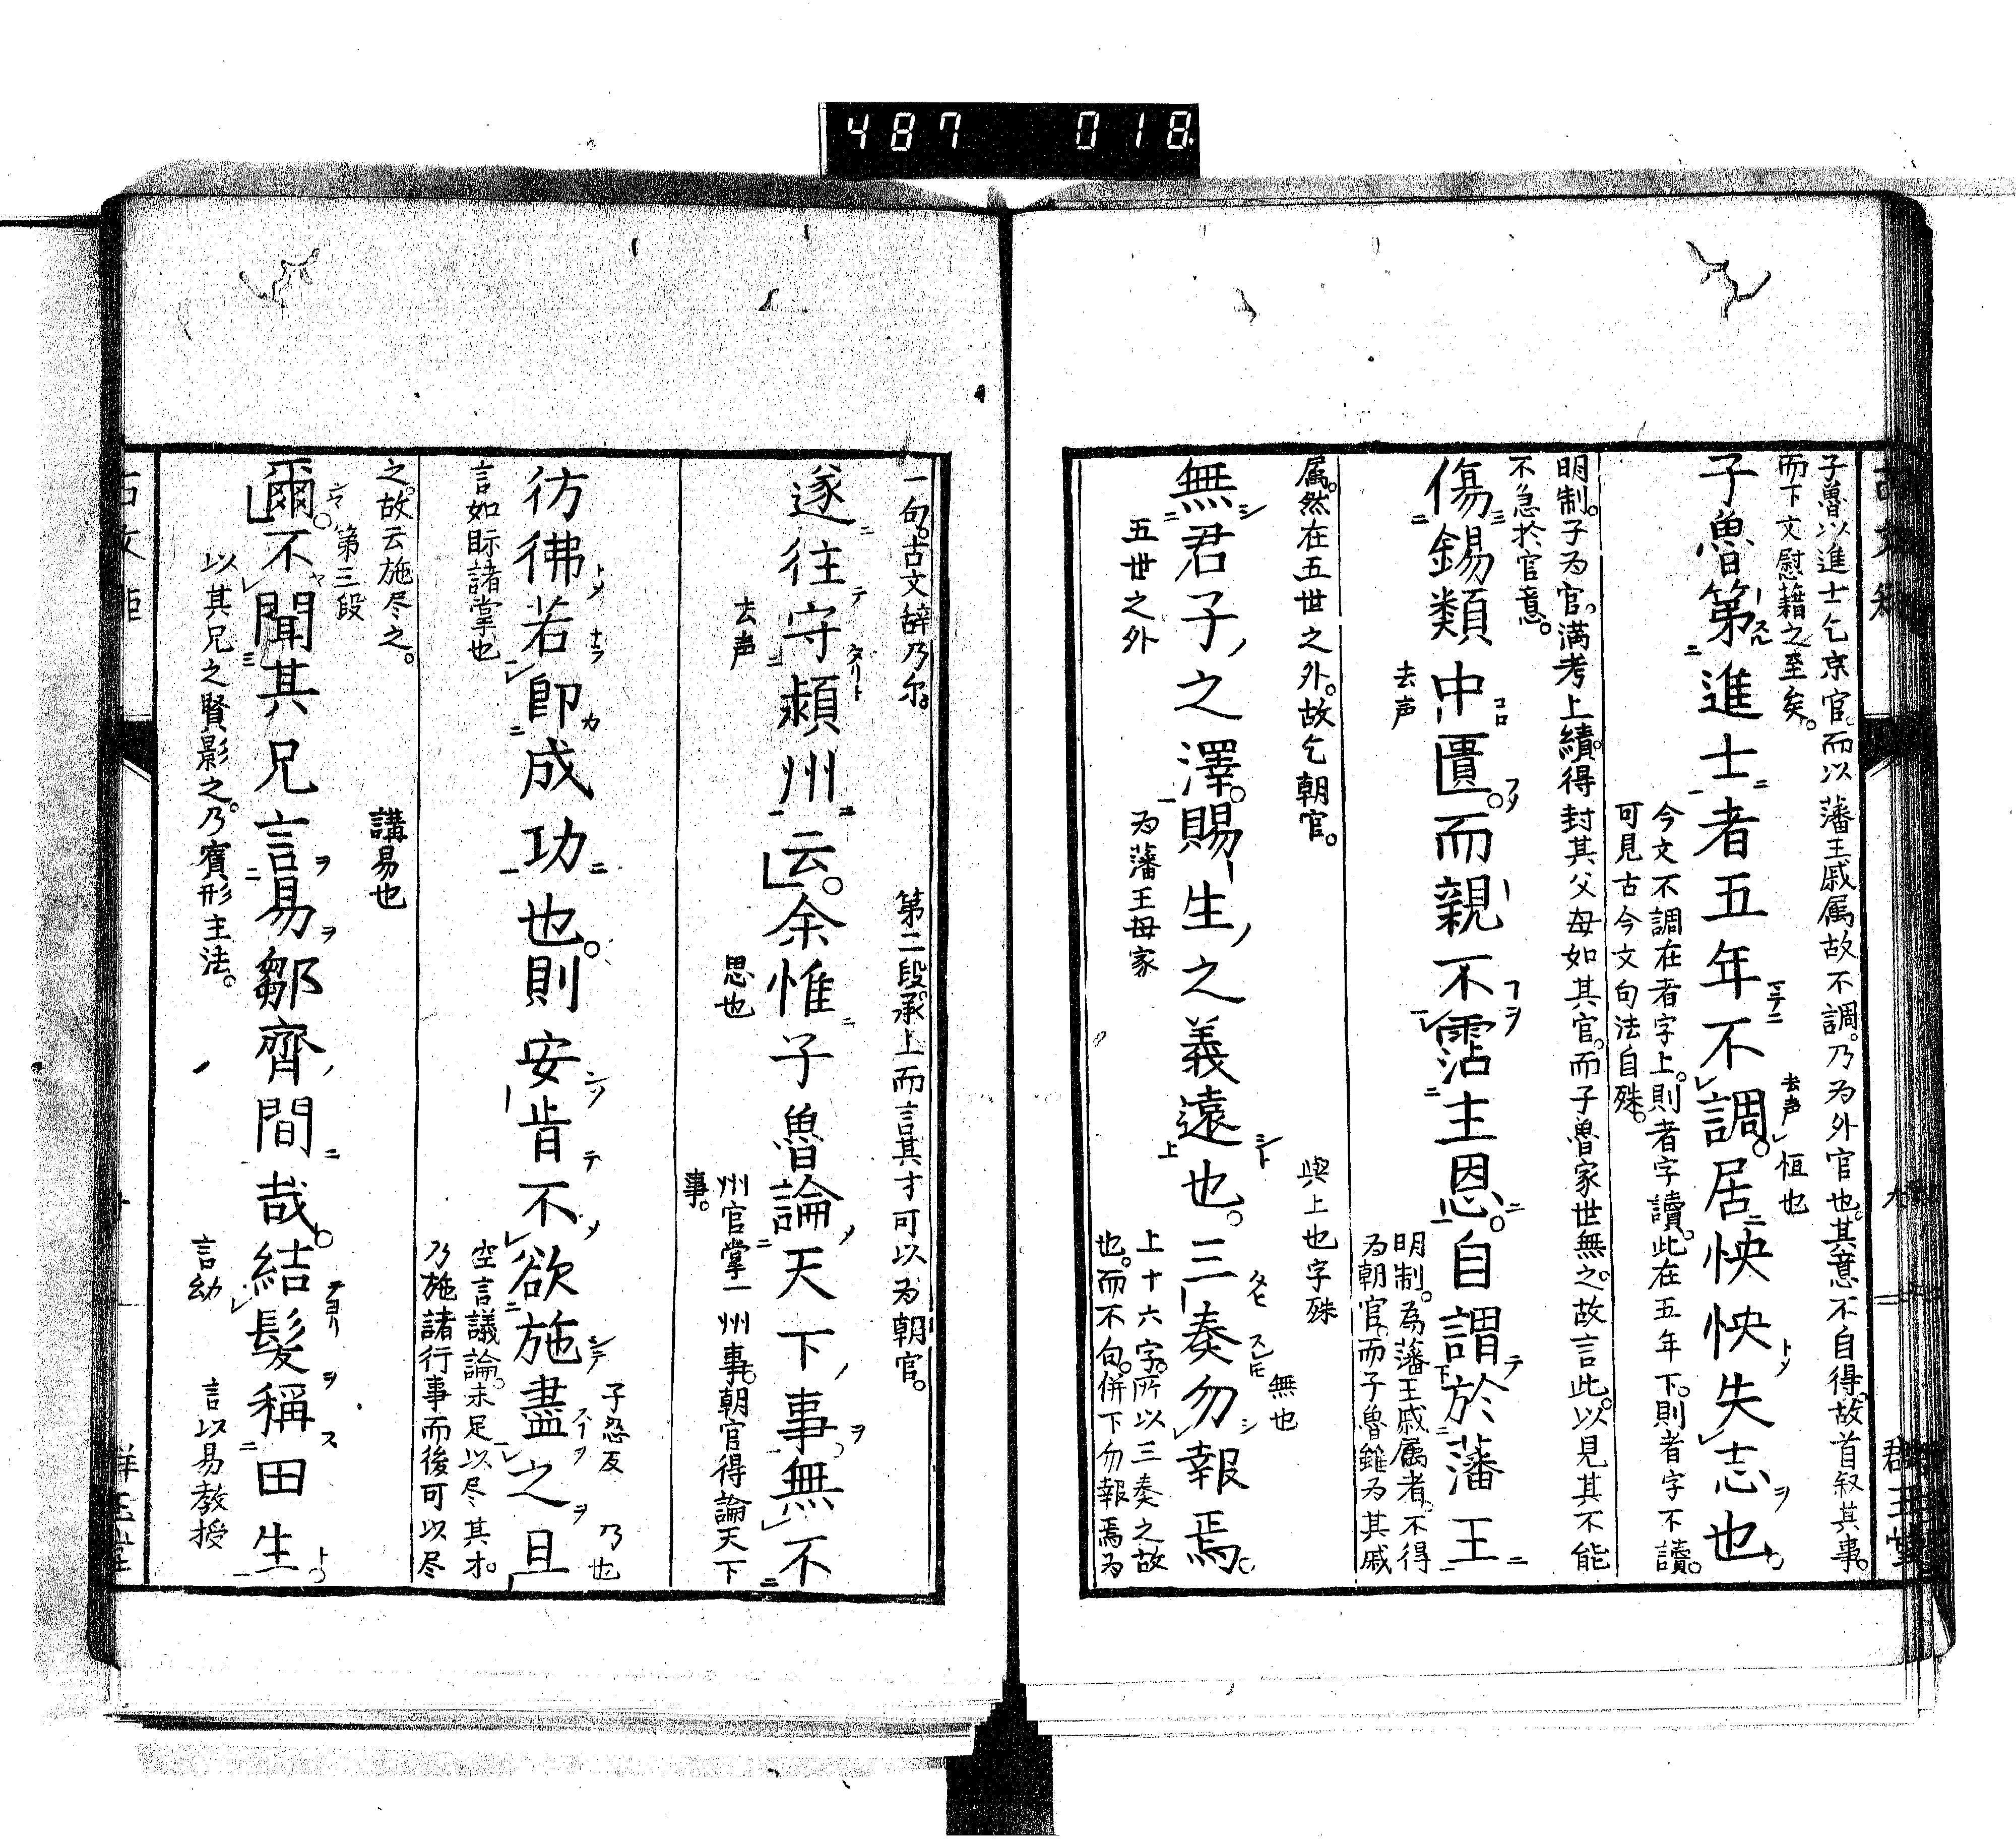 487 018
子魯以進士乞京官而以藩王戚属故不調乃為外官也其意不自得故首叙其事
而下文慰藉之至矣
去声 恒也
子魯第進士者五年不調居怏怏失志也
今文不調在者字上則者字讀此在五年下則者字不讀
可見古今文句法自殊
明制子為官満考上績得封其父母如其官而子魯家世無之故言此以見其不能
不急於官意
傷錫類中匱而親不霑主恩自謂於藩王
去声
明制為藩王戚属者不得
為朝官而子魯雖為其戚
属然在五世之外故乞朝官
與上也字殊
無也
無君子之澤賜生之義遠也三奏勿報焉
五世之外
為藩王母家
上十六字所以三奏之故
也而不句併下勿報焉為
一句古文辞乃尔
第二段承上而言其才可以為朝官
遂往守潁州云余惟子魯論天下事無不
去声
思也
州官掌一州事朝官得論天下
事
子忍反
乃也
彷彿若即成功也則安肯不欲施盡之且
言如眎諸掌也
空言議論未足以尽其才
乃施諸行事而後可以尽
之故云施尽之
講易也
第三段
爾不聞其兄言易鄒齊間哉結髮稱田生
以其兄之賢影之乃賓形主法
言幼
言以易教授